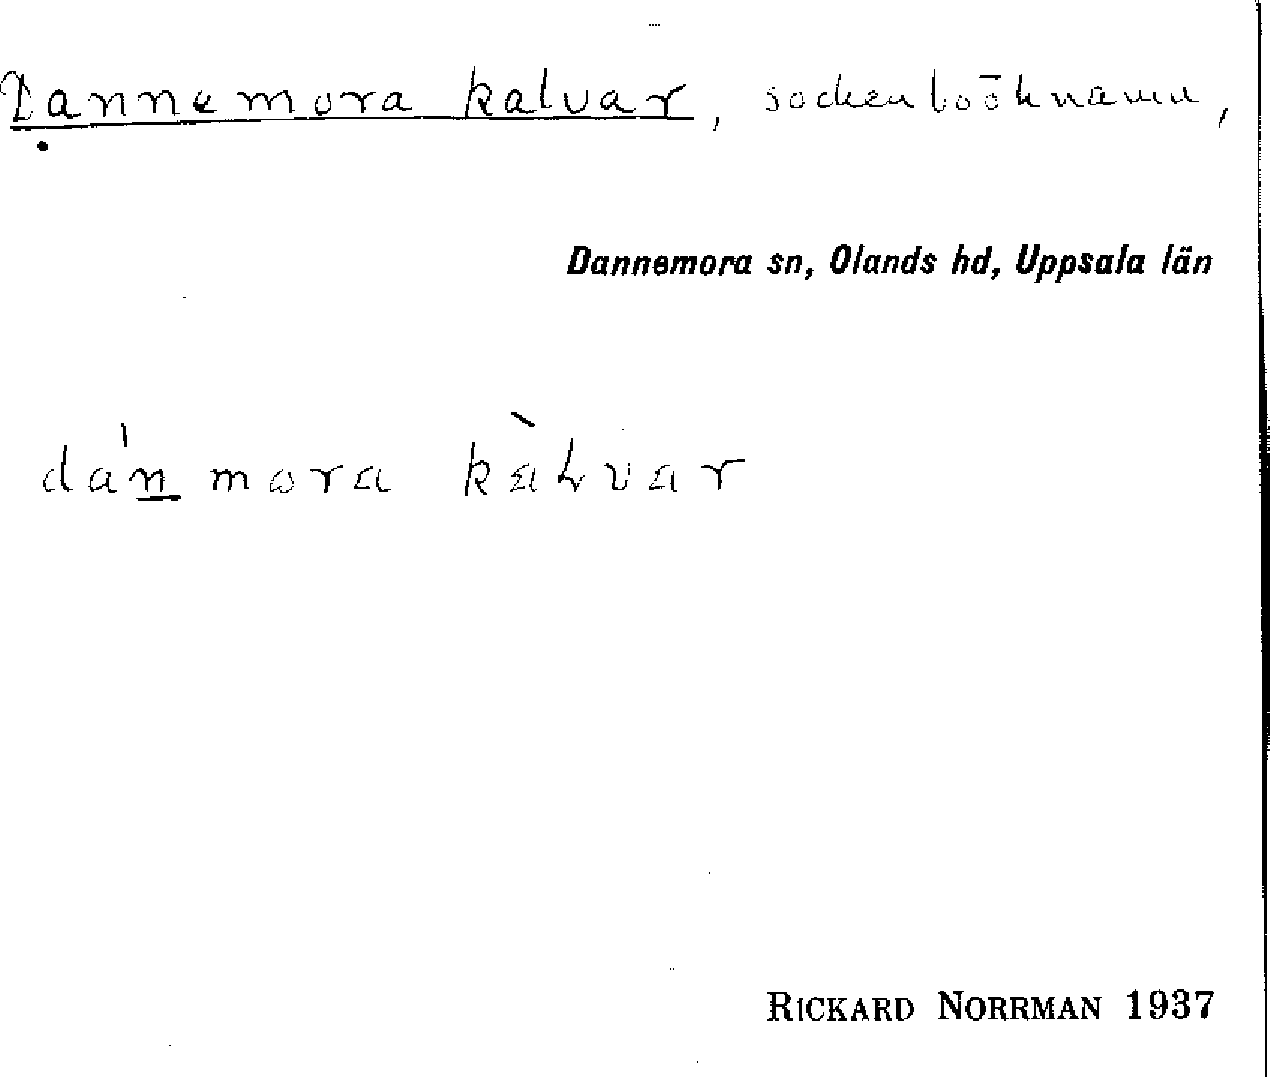 Dannemora kalvar, sockenböknamn,
Dannemora sn, Olands hd, Uppsala län
dánmora kàɫvar
RICKARD NORRMAN 1937